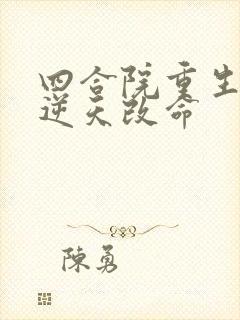 四合院重生
逆天改命
陳勇